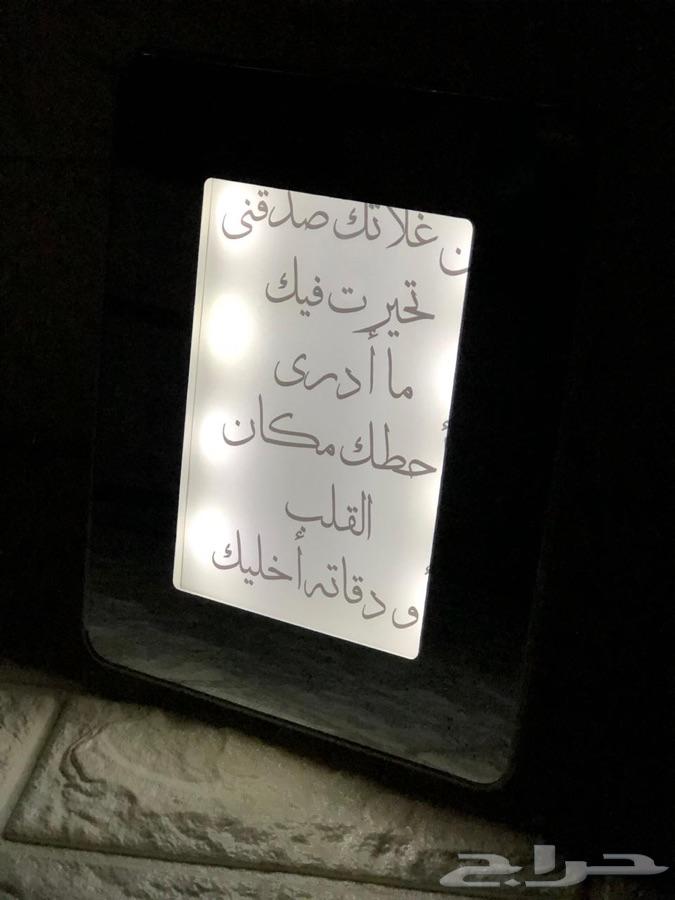 ن غلاتك صدقنى
تحيرت فيك
ما أدرى
أحطك مكان
القلب
أو دقاته أخليك
حراج